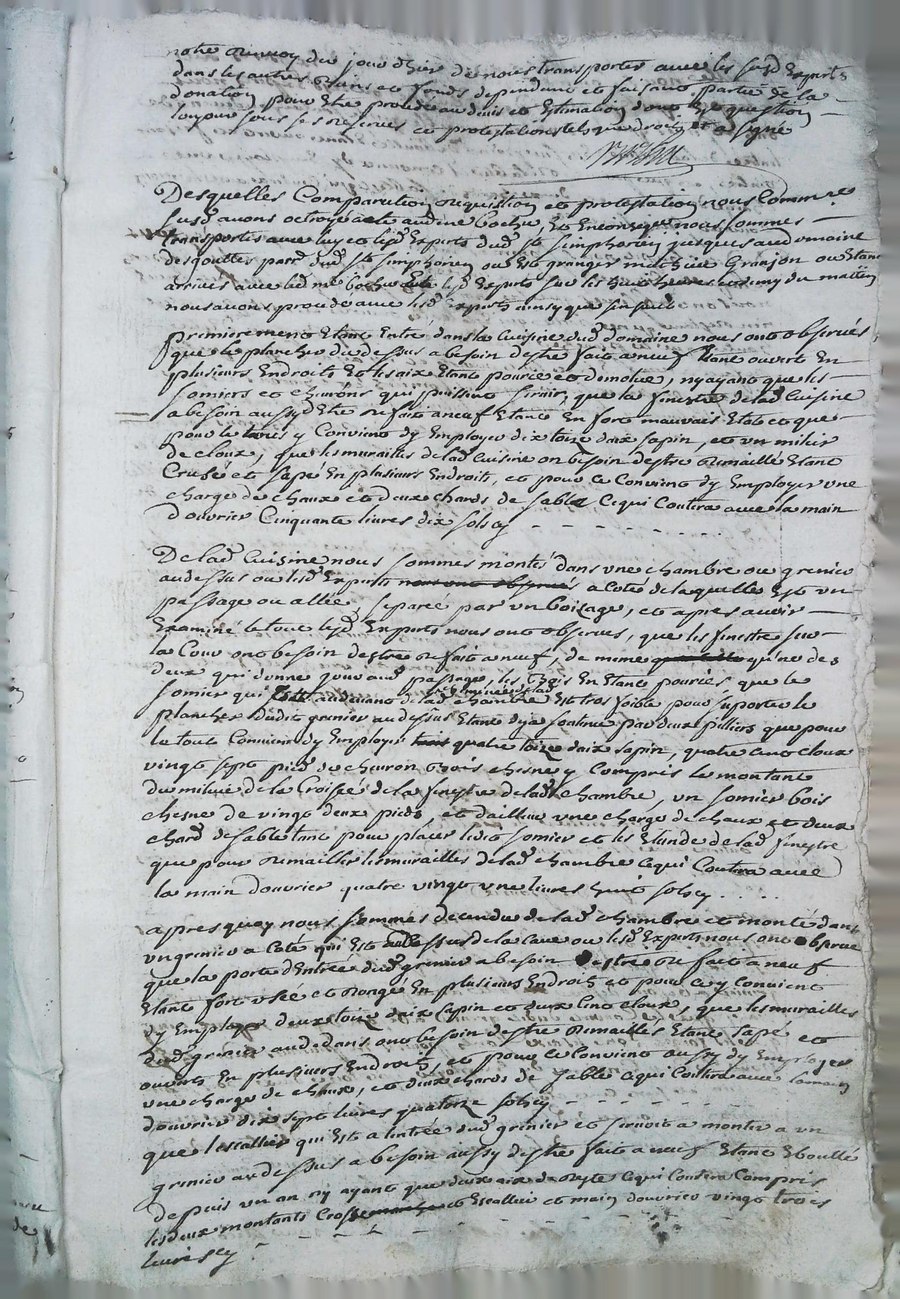 notre renvoy du jour d'hier de nous transporter avec les susd experts
dans les autres et fonds dependant et faisant partie de la
donation pour estre procedé au devis et estimation dont est question
toujour sous ses reserves et protestations telsque droit et a signé
Desquelles Comparution requisition et protestation nous Commre
susd avons octroyé acte aud me Cochu, Et En consequence nous sommes
transportés avec luy et lesd Experts dud St simphorien jusques au domaine
desgouttes parr dud St simphorien ou Est granger mathieu Granjon ou Etant
arrivés avec led me Cochu lesd Experts sur les huit heures du mattin
nous avons procedé avec lesd Experts ainsy que sensuit
premierement Etant Entré dans la Cuisine dud domaine nous ont observés
que le plancher du dessus a besoin destre fait a neuf Etant ouvert En
plusieurs Endroits Et les aix Etant pouries et demolue, ny ayant que les
somiers et chevrons qui puissent servir, que la finestre de lad Cuisine
a besoin aussy dEtre refait aneuf Etant En fort mauvais Etat et que
pour le tout y Convient dy Employer dix toise daix sapin, et un milier
de cloux, que les murailles de lad Cuisine on besoin destre remaillé Etant
Crusée et sapé En plusieurs Endroits, et pour ce Convient dy Employer une
charge de chaux et deux chards de sable Ce qui Contera avec la main
d'ouvrier Cinquante livres dix sols cy - - - - -
De lad Cuisine nous sommes montés dans une chambre ou grenier
audessus ou lesd Experts nous ont observés a Coté de laquelles Est un
passage ou allée, separé par un boizage, et apres avoir
Examiné le tout lesd Experts nous ont observes, que les finestre sur
la Cour ont besoin destre refait aneuf, de meme qu'une des
deux qui donne jour aud passage, les trois En Etant pouries que le
somier qui audevant de lad chambre Est trop foible pour suporter le
plancher dudit grenier au dessus Etant deja soutenu par deux pilliers que pour
le tout Convient dy Employer trois quatre toize daix sapin, quatre cent cloux
vingt sept pieds de chevron trois chesne y Compris le montant
du milieu de la Croisée de la fenestre de lad chambre, un somier bois
chesne de vingt deux pieds, et dailleur une charge de chaux et deux
chard de sable tant pour placer ledit somier et les de lad finestre
que pour remailler les murailles de lad chambre ce qui Contera avec
la main d'ouvrier quatre vingt une livres huit sols cy . . . .
apres quoy nous sommes decendu de lad chambre et monté dans
un grenier a Coté qui Est audessus de la Cave ou lesd Experts nous ont observé
que la porte dEntrée dud grenier a besoin destre refait a neuf
Etant fort usée et rongé En plusieurs Endroits et pour ce y Convient
dy Employer deux toize daix sapin et deux Cent cloux, que les murailles
dud grenier audedans ont besoin destre remailles Etant sapé et
ouverts En plusieurs Endroits, et pour ce Convient aussy dy Employer
une charge de chaux, et deux chards de sable ce qui Contera avec lamain
d'ouvrier dix sept livres quatorze sols cy - - - - -
que lescallier qui Est a lentrée dud grenier et servoit a monter a un
grenier au dessus a besoin aussy destre fait a neuf Etant Eboullé
depuis un an ny ayant que deux aix de reste Ce qui Contera Compris
les deux montants et Escallier et main d'ouvrier vingt trois
livres cy - - - - -